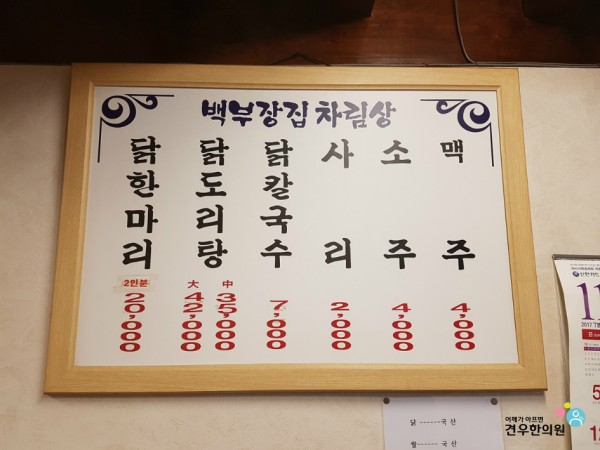 백부장집 차림상
닭한마리
2인분
20,000
닭도리탕
大 42,000
中 35,000
닭칼국수
7,000
사리
2,000
소주
4,000
맥주
4,000
닭 ------국 산
쌀------국 산
11
2017
5
12
어깨가 아프면
견우한의원